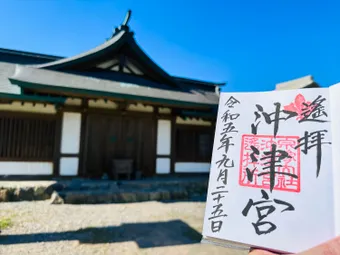 遙拝
沖津宮
令和五年九月二十五日